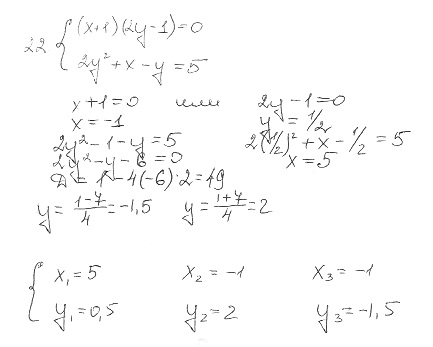 22 { (x+1)(2y-1)=0
2y²+x-y=5
x+1=0 или 2y-1=0
x=-1 y=1/2
2y²-1-y=5 2(1/2)²+x-1/2=5
2y²-y-6=0 x=5
D=1-4(-6)·2=49
y=(1-7)/4=-1,5 y=(1+7)/4=2
{ x₁=5 x₂=-1 x₃=-1
y₁=0,5 y₂=2 y₃=-1,5